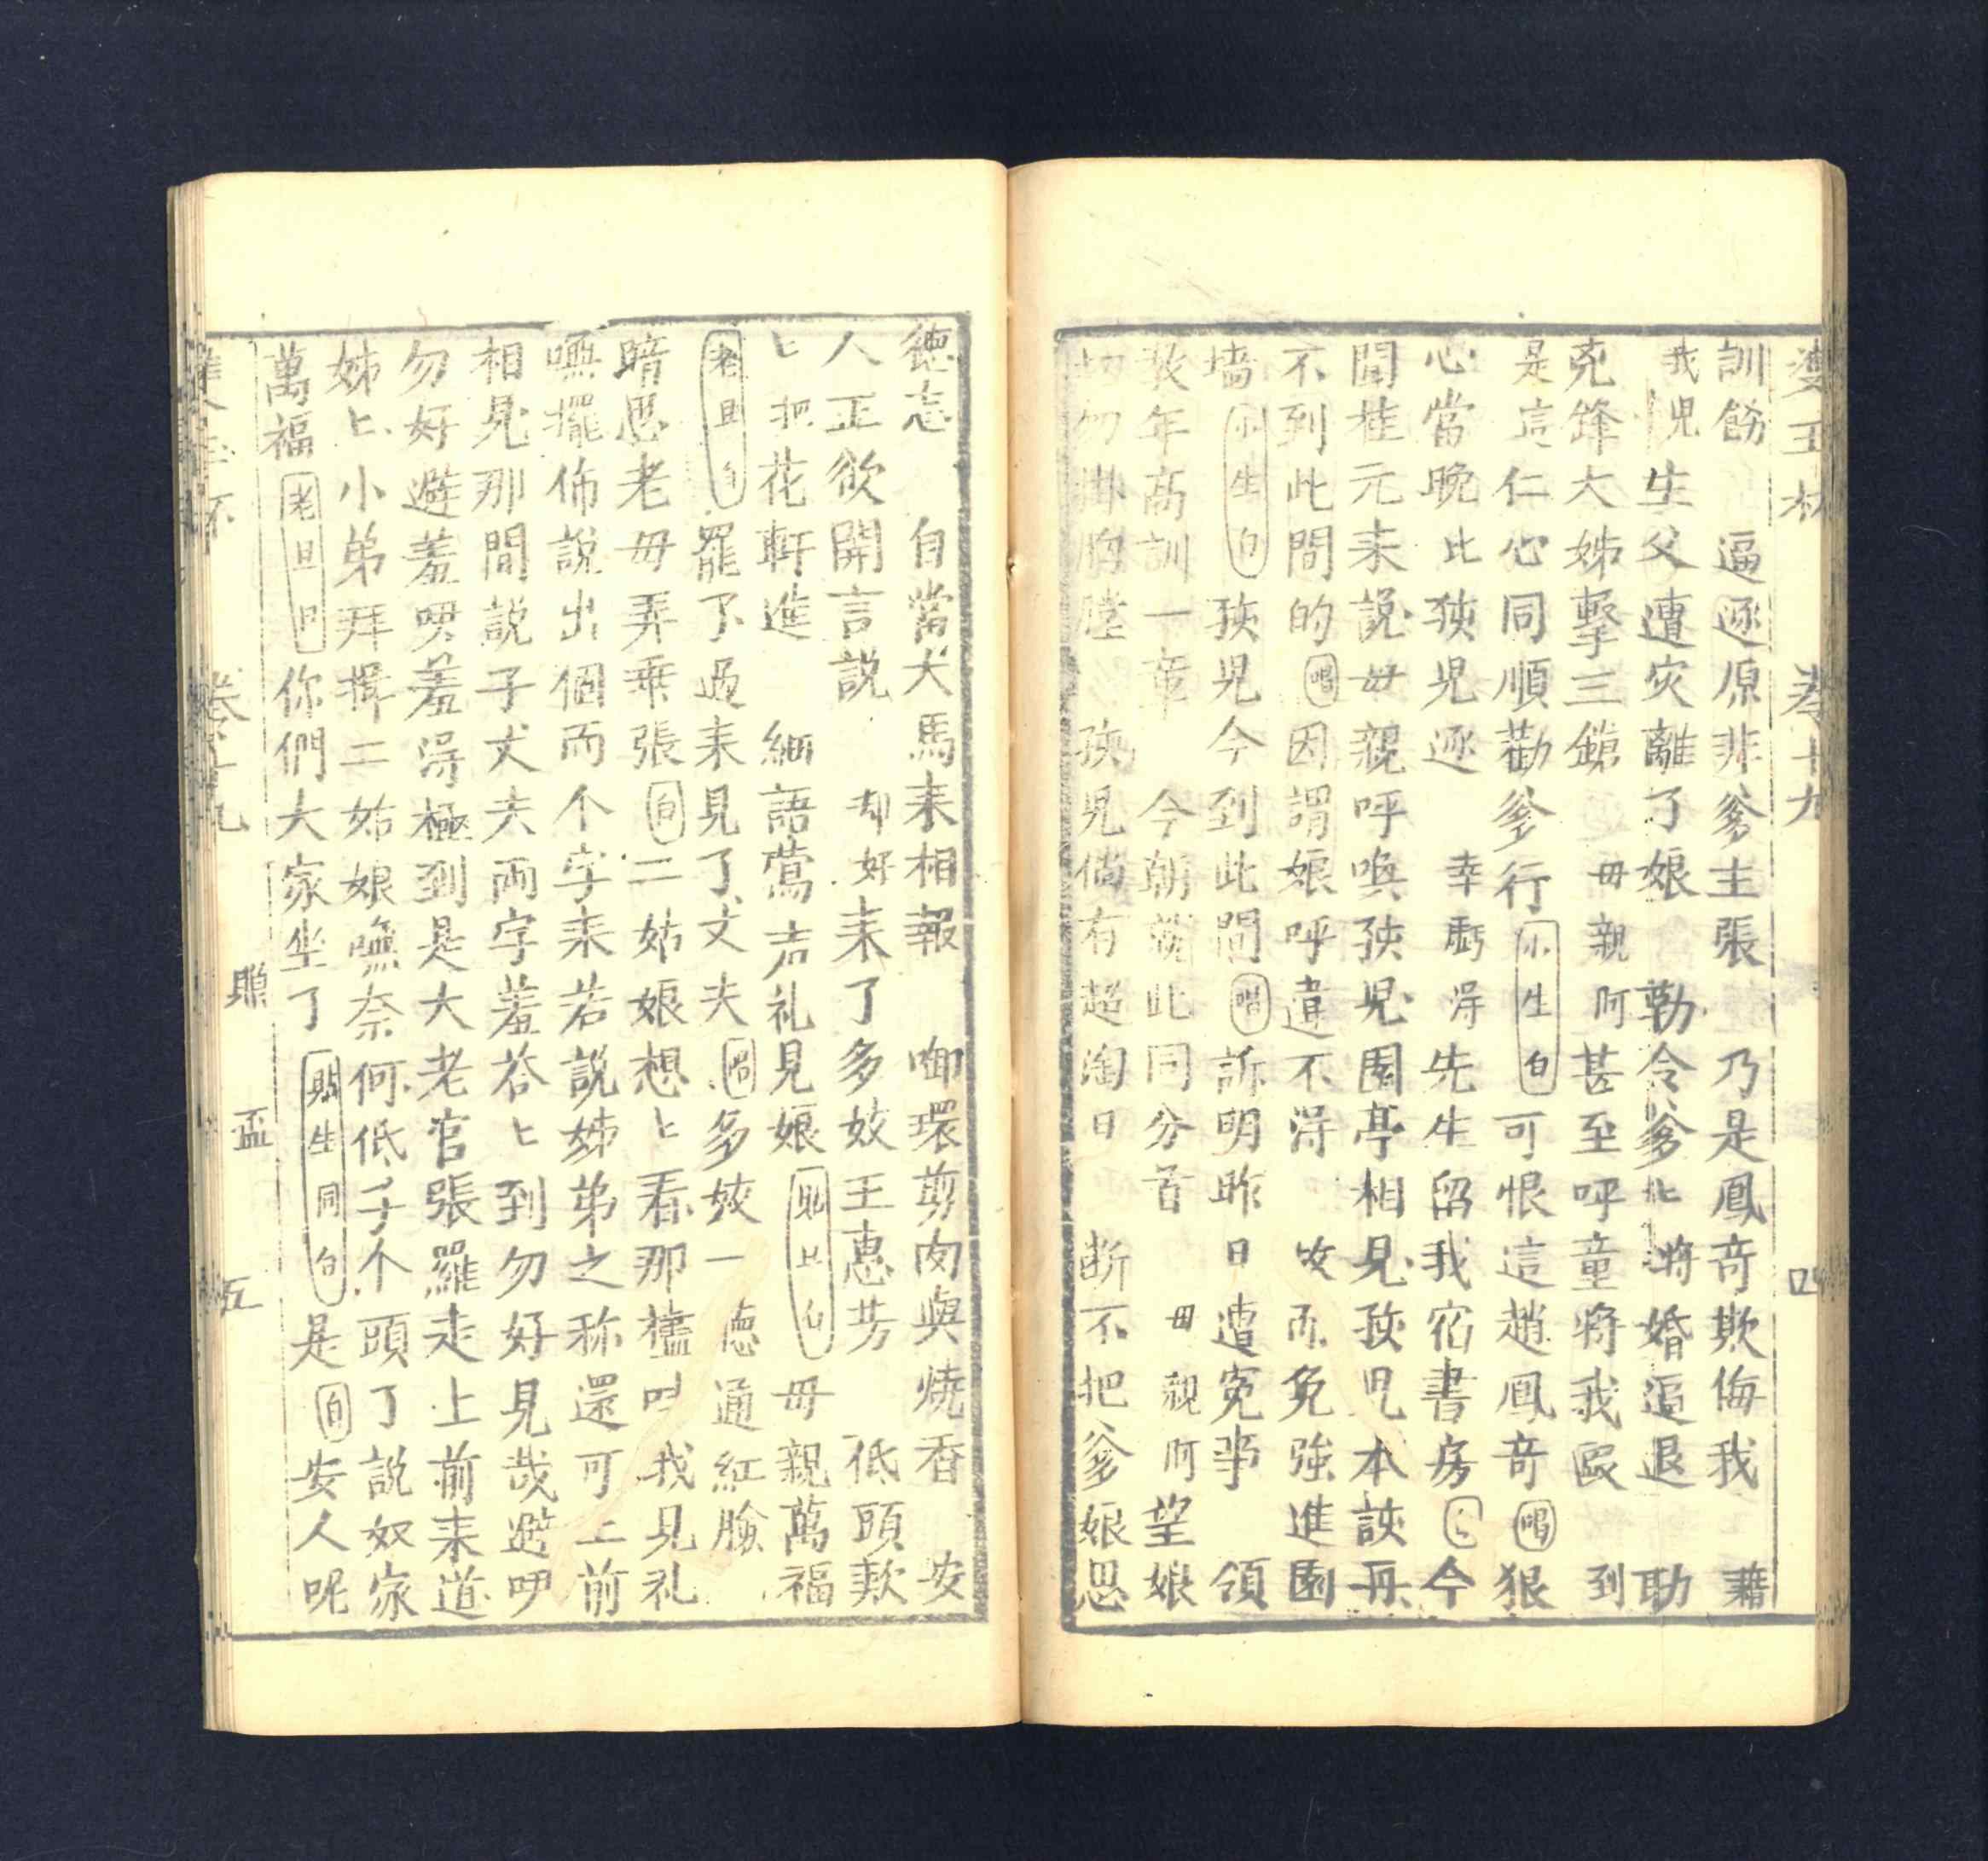 雙玉杯 卷十九 四
訓飭 逼逐原非爹主張 乃是鳳竒欺侮我 藉
我児 生父遭灾離了娘 勒令爹爹將婚逼退 助
兇鋒大姊擊三鎗 毋親阿甚至呼童將我毆 到
是這仁心同順勸爹行 小生白 可恨這趙鳳竒 唱 狠
心當晚比狹児逐 幸虧淂先生留我宿書房 今
聞桂元耒說毋親呼喚孩児園亭相見孩児本該再
不到此間的 唱 因謂娘呼違不淂 強進園
墻 小生白 孩児今到此間 唱 訴明昨日遭寃事 領
教年高訓一章 今朝親此同分首 毋親阿望娘
切勿掛胸膛 孩児倘有超淘日 断不把爹娘恩
德忘 自當犬馬耒相報 啣環剪肉與燒香 安
人正欲開言説 却好耒了多姣王惠芳 低頭欵
匕把花軒進 細語鶯声礼見娘 貼旦白 毋親萬福
老旦白 罷了過耒見了丈夫 唱 多姣一 通紅臉
暗思老毋弄乖張 白 二姑娘想匕看那櫣叫我見礼
嘸擺佈説出個両个字耒若説姊弟之称還可上前
相見那間説子丈夫両字羞荅匕到勿好見哉避吚
勿好避羞哭羞淂極到是大老官張羅走上前耒道
姊匕小弟拜揖二姑娘嘸奈何低子个頭了說奴家
萬福 老旦白 你們大家坐了 貼生同白 是 白 安人呢
雙玉杯 卷十九 賜盃 五